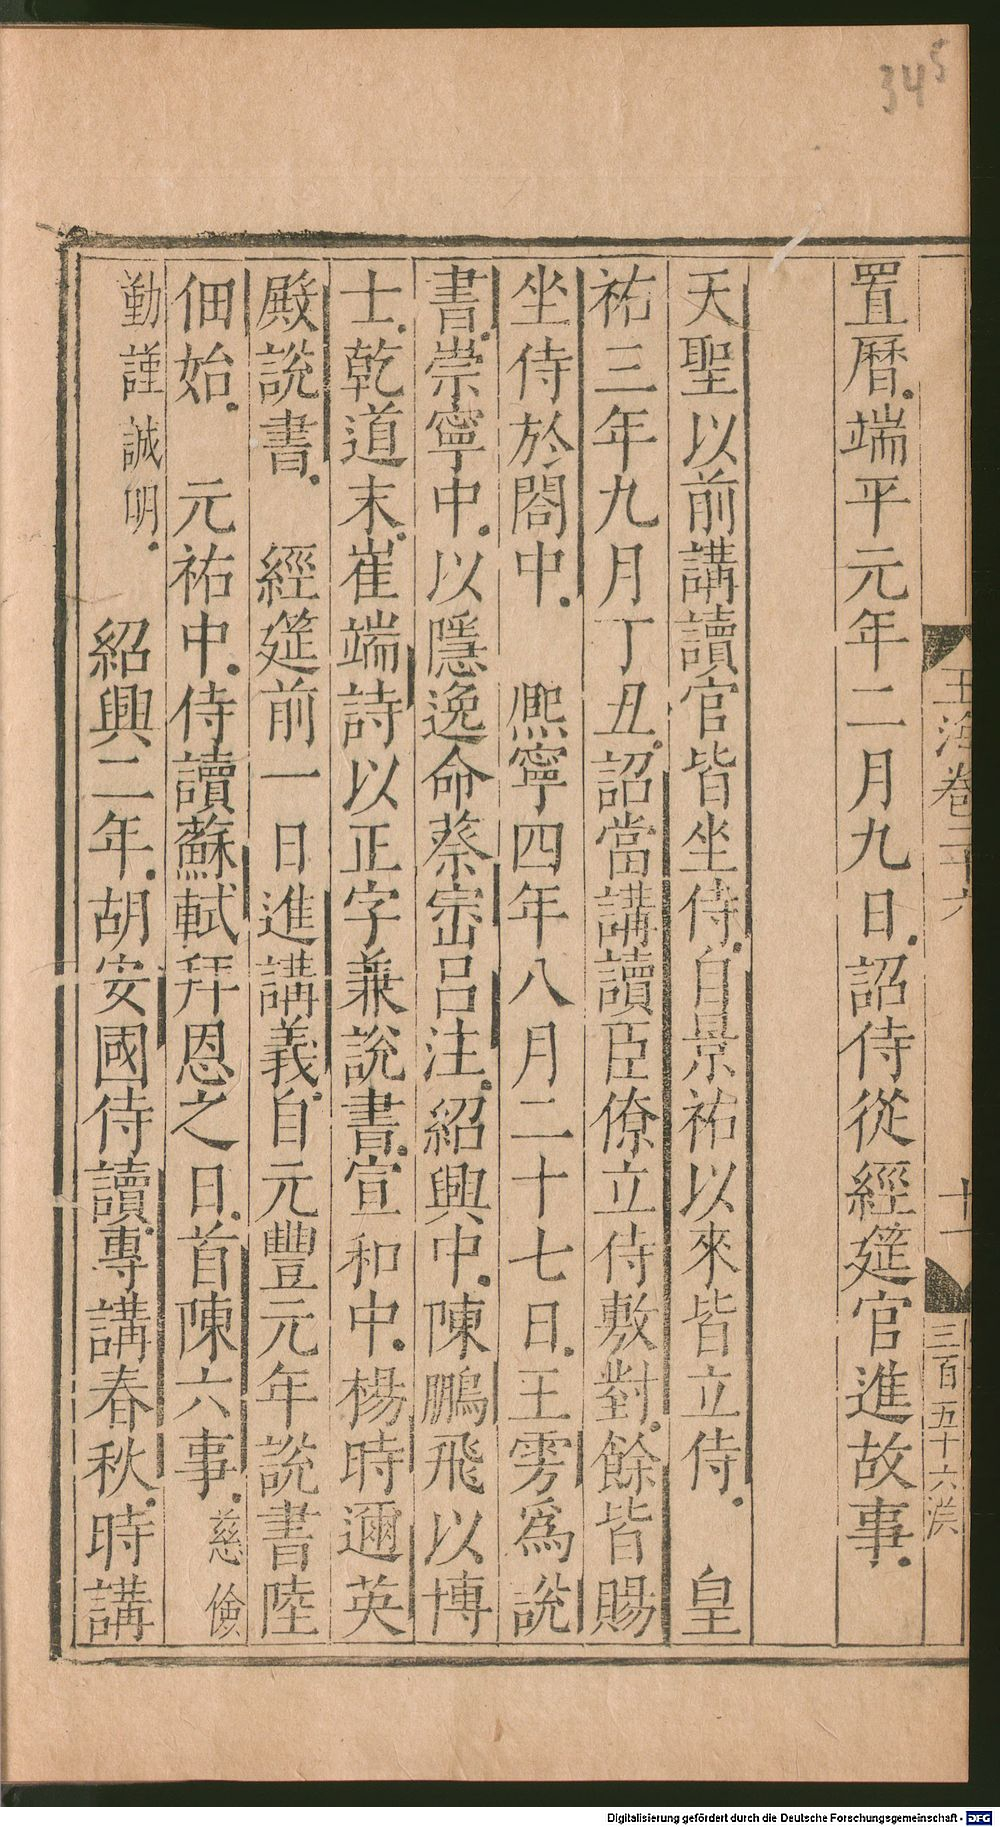 345
玉海卷二十六
十一
三百五十六
置曆。端平元年二月九日。詔侍從經筵官進故事。
天聖以前講讀官皆坐侍。自景祐以來皆立侍。 皇
祐三年九月丁丑。詔當講讀臣僚立侍敷對。餘皆賜
坐侍於閤中。 熈寧四年八月二十七日。王雱爲說
書。崇寧中。以隱逸命蔡崈呂注。紹興中。陳鵬飛以博
士。乾道末。崔端詩以正字兼說書。宣和中。楊時邇英
殿說書。 經筵前一日進講義。自元豐元年說書陸
佃始。 元祐中。侍讀蘇軾拜恩之日。首陳六事。慈儉
勤謹誠明。 紹興二年。胡安國侍讀。專講春秋。時講
Digitalisierung gefördert durch die Deutsche Forschungsgemeinschaft - DFG